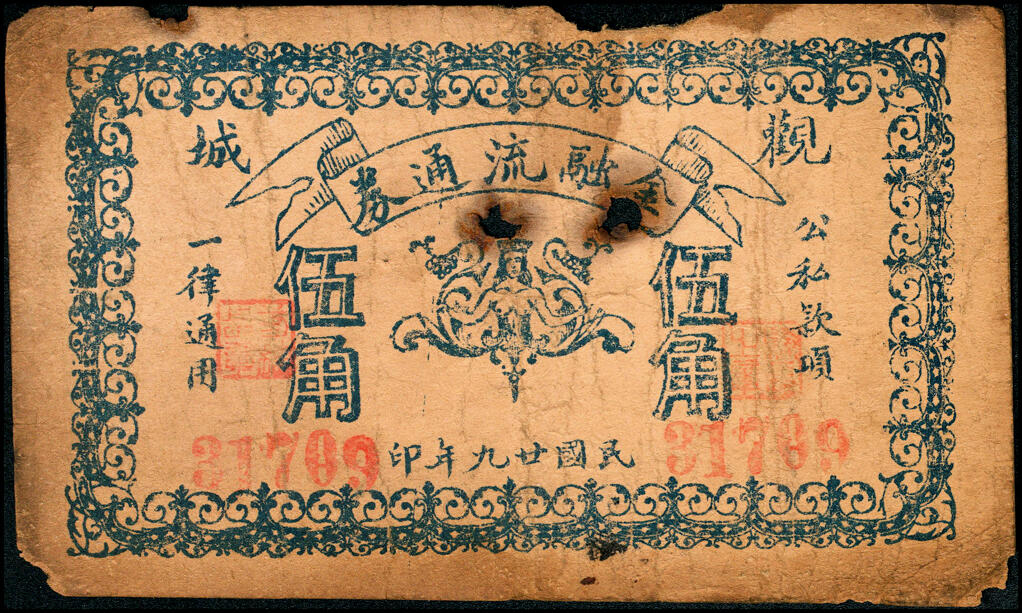 觀城
金融流通券
公私款項
伍角
伍角
一律通用
民國廿九年印
31709
31709